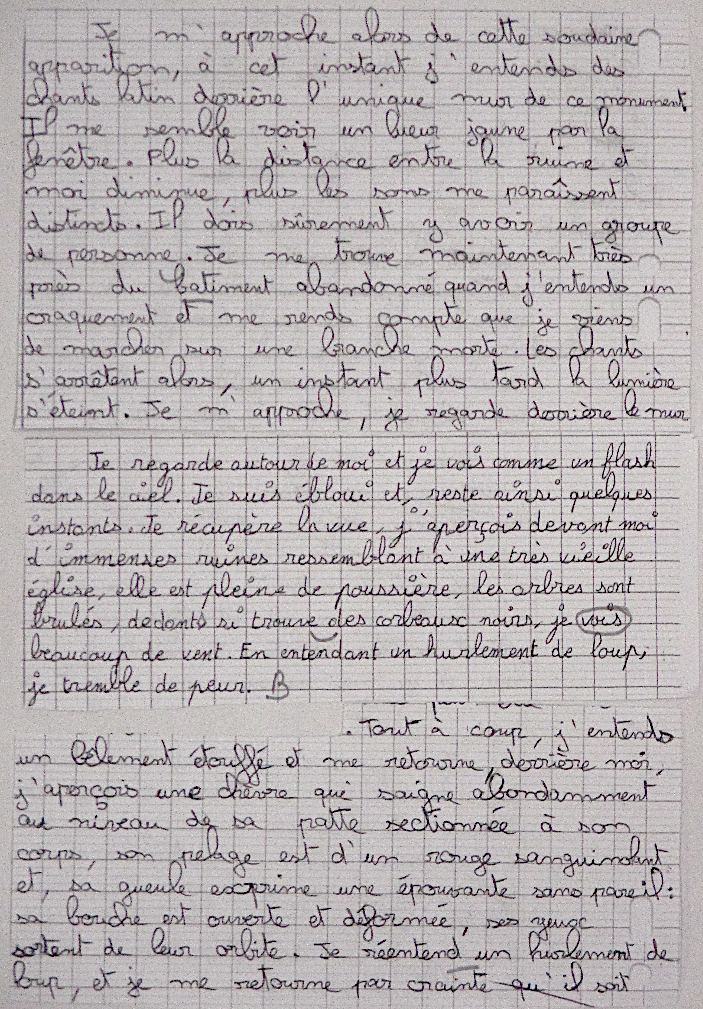 Je m'approche alors de cette soudaine
apparition, à cet instant j'entends des
chants latin derrière l'unique mur de ce monument.
Il me semble voir un lueur jaune par la
fenêtre. Plus la distance entre la ruine et
moi diminue, plus les sons me paraîssent
distincts. Il dois sûrement y avoir un groupe
de personne. Je me trouve maintenant très
près du batiment abandonné quand j'entends un
craquement et me rends compte que je viens
de marcher sur une branche morte. Les chants
s'arrêtant alors, un instant plus tard la lumière
s'éteint. Je m'approche, je regarde derrière le mur
Je regarde autour de moi et je vois comme un flash
dans le ciel. Je suis ébloui et, reste ainsi quelques
instants. Je récupère la vue, j'aperçois devant moi
d'immenses ruines ressemblant à une très vieille
église, elle est pleine de poussière, les arbres sont
brulés, dedants si trouve des corbeaux noirs, je vois
beaucoup de vent. En entendant un hurlement de loup,
je tremble de peur. B
. Tout à coup, j'entends
un bêlement étouffé et me retourne, derrière moi,
j'aperçois une chèvre qui saigne abondamment
au niveau de sa patte sectionnée à son
corps, son pelage est d'un rouge sanguinolant
et, sa gueule exprime une épouvante sans pareil :
sa bouche est ouverte et déformée, ses yeux
sortent de leur orbite. Je réentend un hurlement de
loup, et je me retourne par crainte qu'il soit